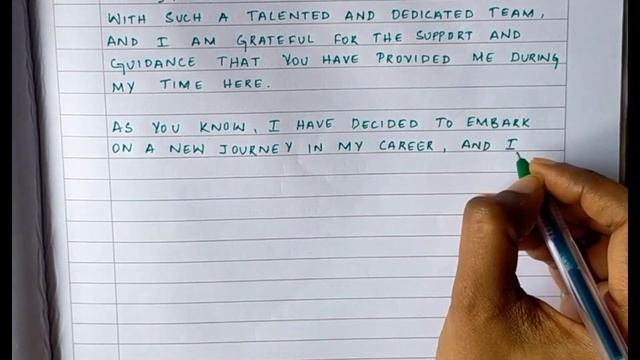 WITH SUCH A TALENTED AND DEDICATED TEAM,
AND I AM GRATEFUL FOR THE SUPPORT AND
GUIDANCE THAT YOU HAVE PROVIDED ME DURING
MY TIME HERE.
AS YOU KNOW, I HAVE DECIDED TO EMBARK
ON A NEW JOURNEY IN MY CAREER, AND I